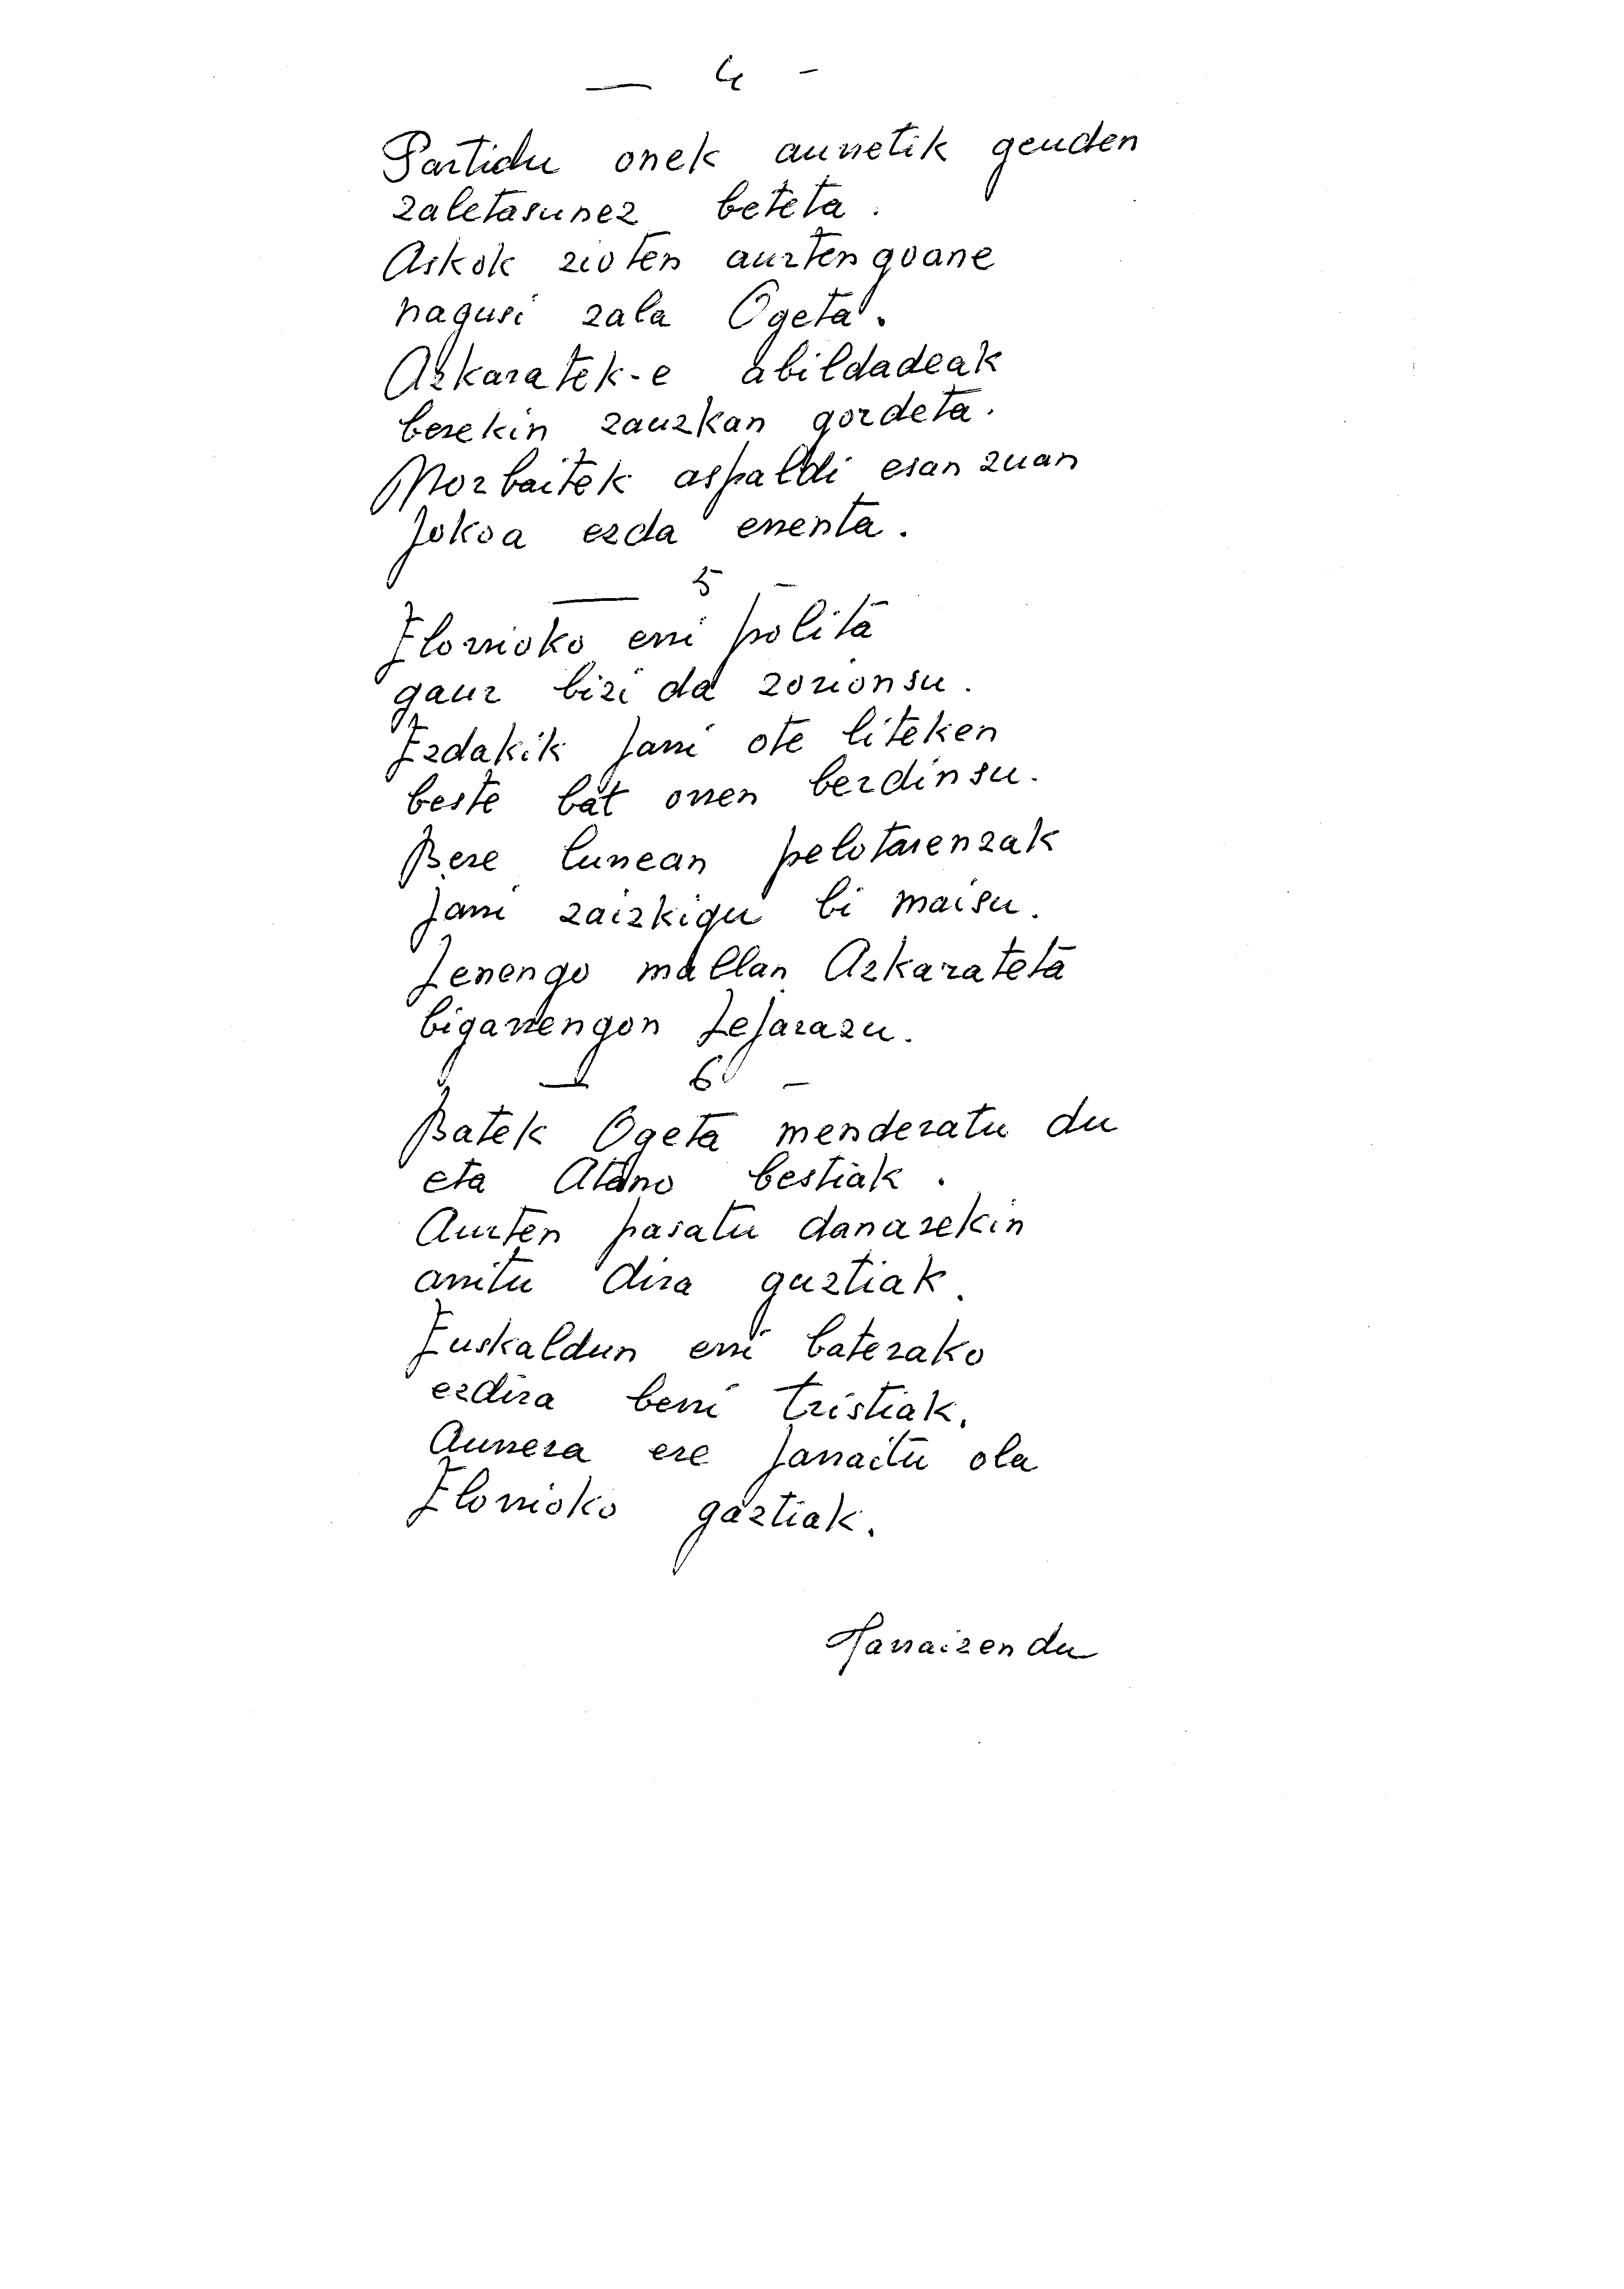 — 4 -
Partidu onek aurretik geuden
zaletasunez beteta.
Askok zioten aurtengoane
nagusi zala Ogeta.
Azkaratek-e abildadeak
berekin zauzkan gordeta.
Norbaitek aspaldi esan zuan
Jokoa ezda errenta.
— 5 -
Elorrioko erri polita
gaur bizi da zorionsu.
Ezdakik jarri ote liteken
beste bat orren berdinsu.
Bere lurrean pelotarenzak
jarri zaizkigu bi maisu.
Lenengo mallan Azkarateta
bigarrengon Lejarazu.
— 6 -
Batek Ogeta menderatu du
eta Atano bestiak.
Aurten pasatu danarekin
arritu dira guztiak.
Euskaldun erri baterako
ezdira berri tristiak.
Aurrera ere jarraitu ola
Elorrioko gaztiak.